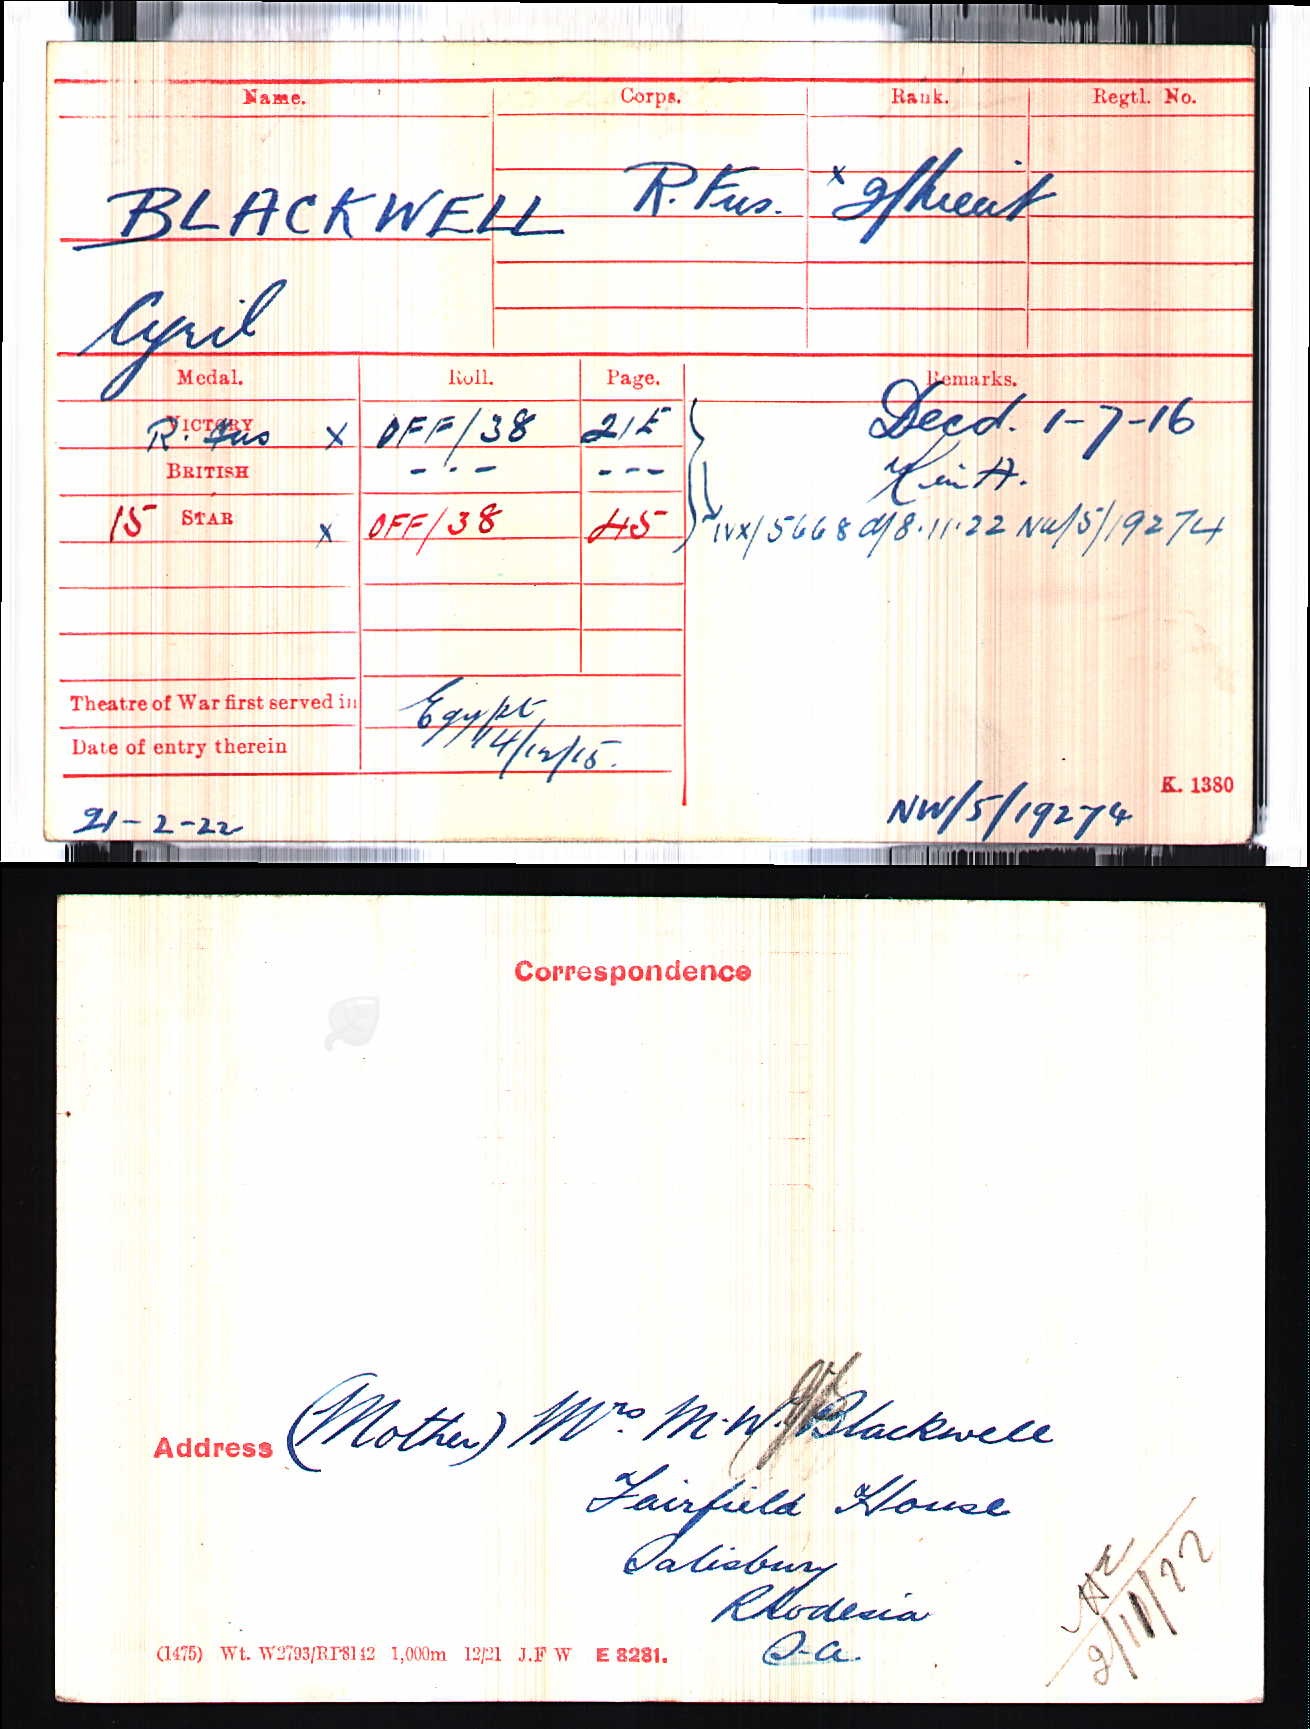 Name. Corps. Rank. Regtl. No.
BLACKWELL R. Fus. x 2/Lieut
Cyril
Medal. Roll. Page. Remarks.
VICTORY R. Fus x OFF/38 21E Decd. 1-7-16
BRITISH - - - - - - K in A.
15 STAR x OFF/38 45 IVX/5668 d/8.11.22 NW/5/19274
Theatre of War first served in Egypt
Date of entry therein 14/12/15.
K. 1380
21-2-22 NW/5/19274
Correspondence
Address (Mother) Mrs. M. W. Blackwell
Fairfield House
Salisbury
Rhodesia
S.A.
2/11/22
(1475) Wt. W2793/RP8142 1,000m 12/21 J.F W E 8281.